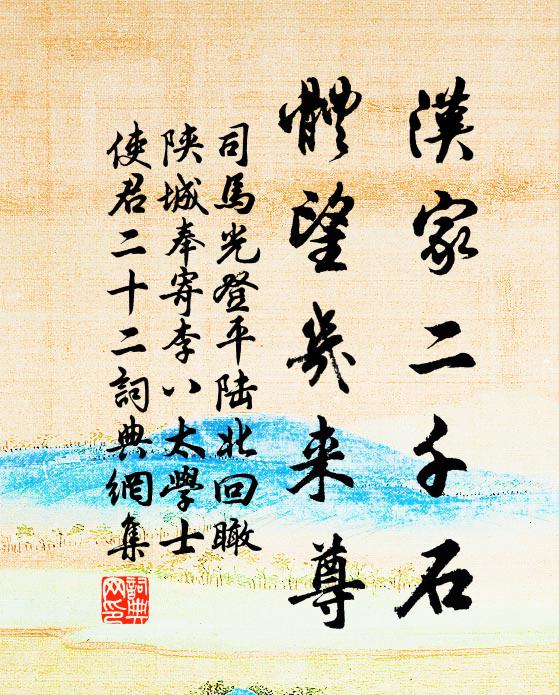 漢家二千石
體望幾来尊
司馬光登平陸北回瞰
陝城奉寄李八太學士
使君二十二詞典網集
詞典
网印